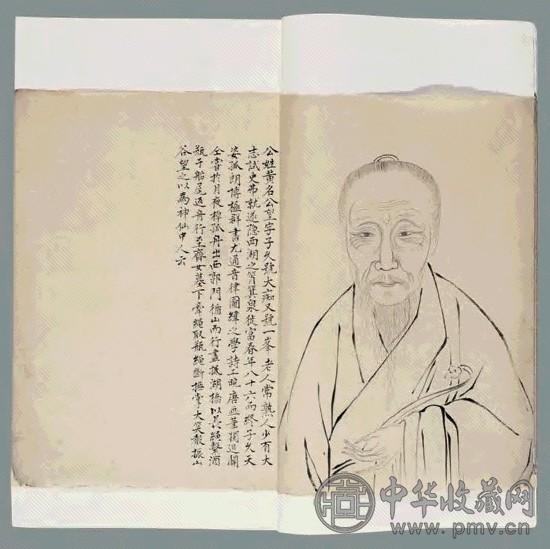 公姓黄名公望字子久號大痴又號一峯老人常熟人少有大
志試吏弗就遂隱西湖之筲箕泉徙富春年八十六而終子久天
姿孤朗博極群書尤通音律圖緯之學詩工晚唐画筆獨追關
仝嘗於月夜棹孤舟出西郭門循山而行盡抵湖橋以長繩繫酒
瓶于船尾返舟行至齊女墓下牽繩取瓶繩斷撫掌大笑聲振山
谷望之以為神仙中人云
中华收藏网
www.pmv.cn